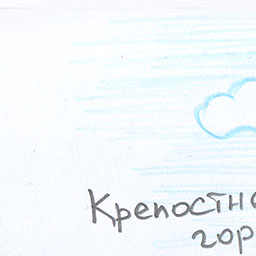 Крепостна
гор